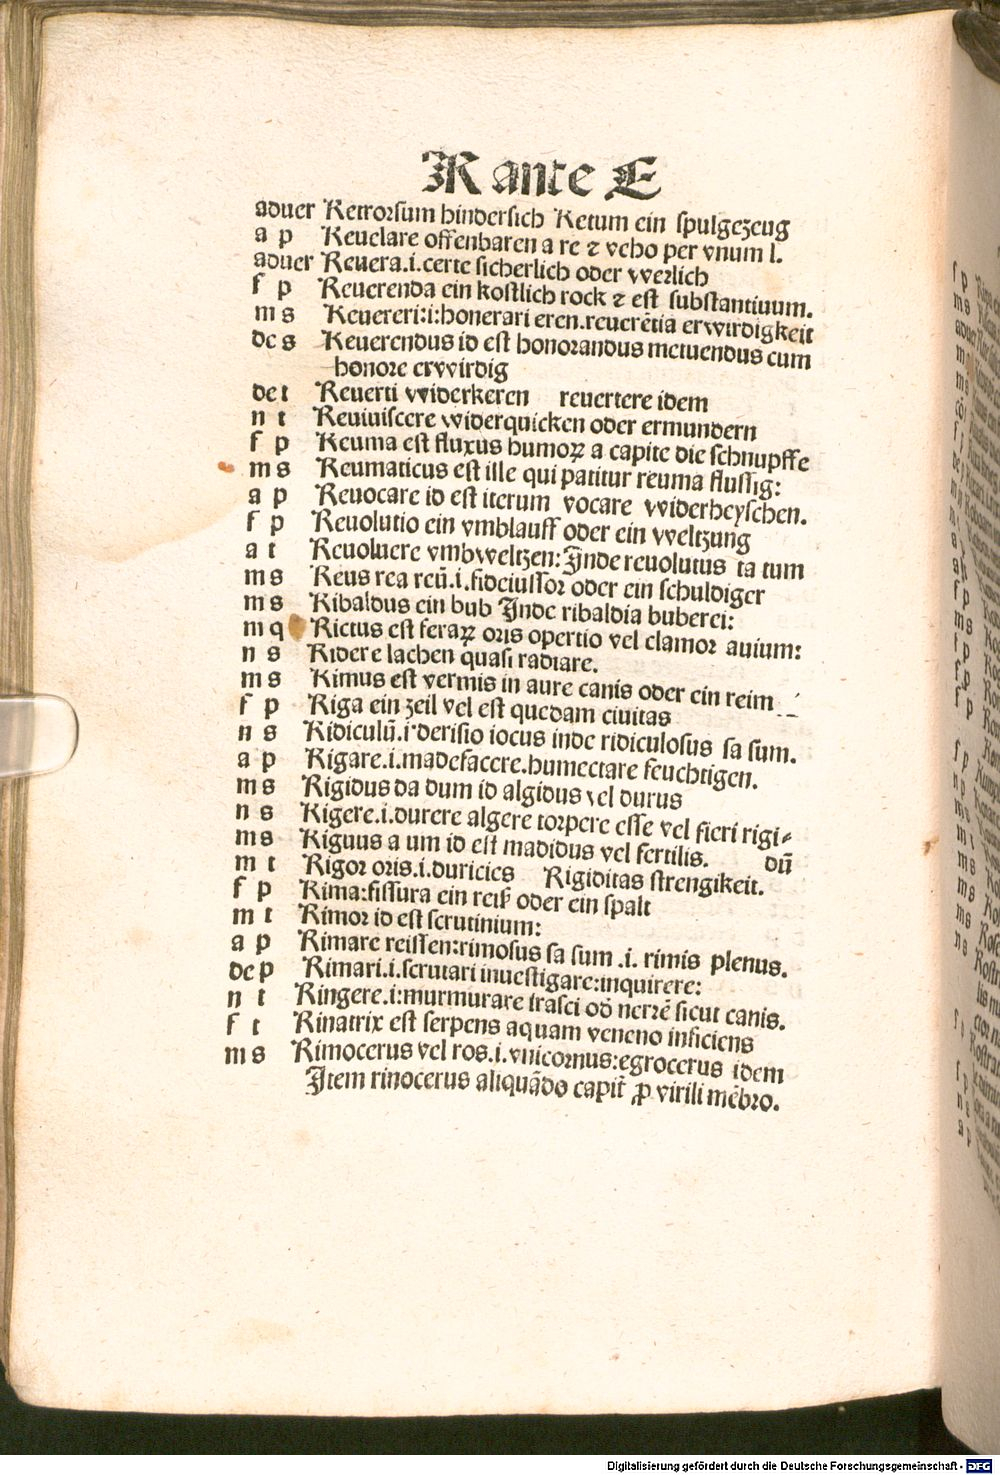 R ante E
aduer Retrorsum hindersich Retum ein spulgezeug
a p Reuelare offenbaren a re ⁊ veho per vnum l.
aduer Reuera.i.certe sicherlich oder werlich
f p Reuerenda ein kostlich rock ⁊ est substantiuum.
m s Reuereri:i:honerari eren.reuerẽtia erwirdigkeit
de s Reuerendus id est honorandus metuendus cum
honore erwirdig
de t Reuerti widerkeren reuertere idem
n t Reuiuiscere widerquicken oder ermundern
f p Reuma est fluxus humoꝝ a capite die schnupffe
m s Reumaticus est ille qui patitur reuma flussig:
a p Reuocare id est iterum vocare widerheyschen.
f p Reuolutio ein vmblauff oder ein weltzung
a t Reuoluere vmbweltzen:Inde reuolutus ta tum
m s Reus rea reũ.i.fideiussor oder ein schuldiger
m s Ribaldus ein bub Inde ribaldia buberei:
m q Rictus est feraꝝ oris opertio vel clamor auium:
n s Ridere lachen quasi radiare.
m s Rimus est vermis in aure canis oder ein reim
f p Riga ein zeil vel est quedam ciuitas
n s Ridiculũ.i·derisio iocus inde ridiculosus sa sum.
a p Rigare.i.madefacere.humectare feuchtigen.
m s Rigidus da dum id algidus vel durus
n s Rigere.i.durere algere torpere esse vel fieri rigi⸗
m s Riguus a um id est madidus vel fertilis. dũ
m t Rigor oris.i.duricies Rigiditas strengikeit.
f p Rima:fissura ein reiß oder ein spalt
m t Rimor id est scrutinium:
a p Rimare reissen:rimosus sa sum .i. rimis plenus.
de p Rimari.i.scrutari inuestigare:inquirere:
n t Ringere.i:murmurare irasci od̃ nerrẽ sicut canis.
f t Rinatrix est serpens aquam veneno inficiens
m s Rimocerus vel ros.i.vnicornus:egrocerus idem
Item rinocerus aliquãdo capit̃ ꝓ virili mẽbro.
Digitalisierung gefördert durch die Deutsche Forschungsgemeinschaft - DFG